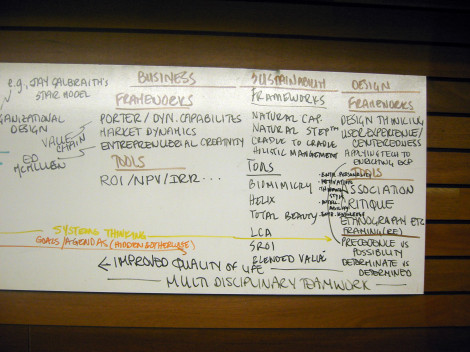 e.g., JAY GALBRAITH'S
STAR MODEL
GANIZATIONAL
DESIGN
VALUE
CHAIN
ED
BUSINESS
FRAMEWORKS
PORTER/DYN. CAPABILITES
MARKET DYNAMICS
ENTREPRENEURIAL CREATIVITY
TOOLS
ROI/NPV/IRR...
SUSTAINABILITY
FRAMEWORKS
NATURAL CAP.
NATURAL STEP™
CRADLE TO CRADLE
HOLISTIC MANAGEMENT
TOOLS
BIOMIMICRY
HELIX
TOTAL BEAUTY
LCA
SROI
BLENDED VALUE
DESIGN
FRAMEWORKS
DESIGN THINKING
USER EXPERIENCE/
CENTEREDNESS
APPLYING TECH TO
ENRICHING EXP
TOOLS
ASSOCIATION
CRITIQUE
ETHNOGRAPHY ETC
FRAMING(RE)
PRECEDENCE VS
POSSIBILITY
DETERMINATE VS
DETERMINED
SYSTEMS THINKING
GOALS/AGENDAS (HIDDEN & OTHERWISE)
IMPROVED QUALITY OF LIFE
MULTI DISCIPLINARY TEAMWORK